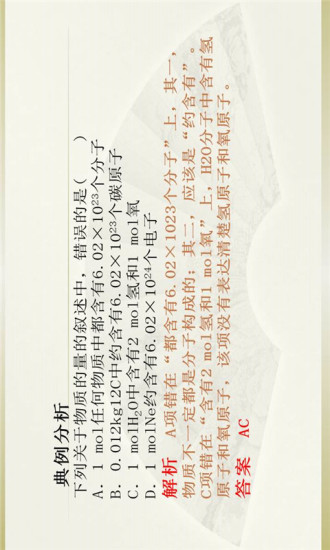 典例分析
下列关于物质的量的叙述中，错误的是(　　)
A．1 mol任何物质中都含有6.02×10²³个分子
B．0.012kg12C中约含有6.02×10²³个碳原子
C．1 molH₂O中含有2 mol氢和1 mol氧
D．1 molNe约含有6.02×10²⁴个电子
解析　A项错在“都含有6.02×1023个分子”上，其一，
物质不一定都是分子构成的；其二，应该是“约含有”。
C项错在“含有2 mol氢和1 mol氧”上，H2O分子中含有氢
原子和氧原子，该项没有表达清楚氢原子和氧原子。
答案　AC